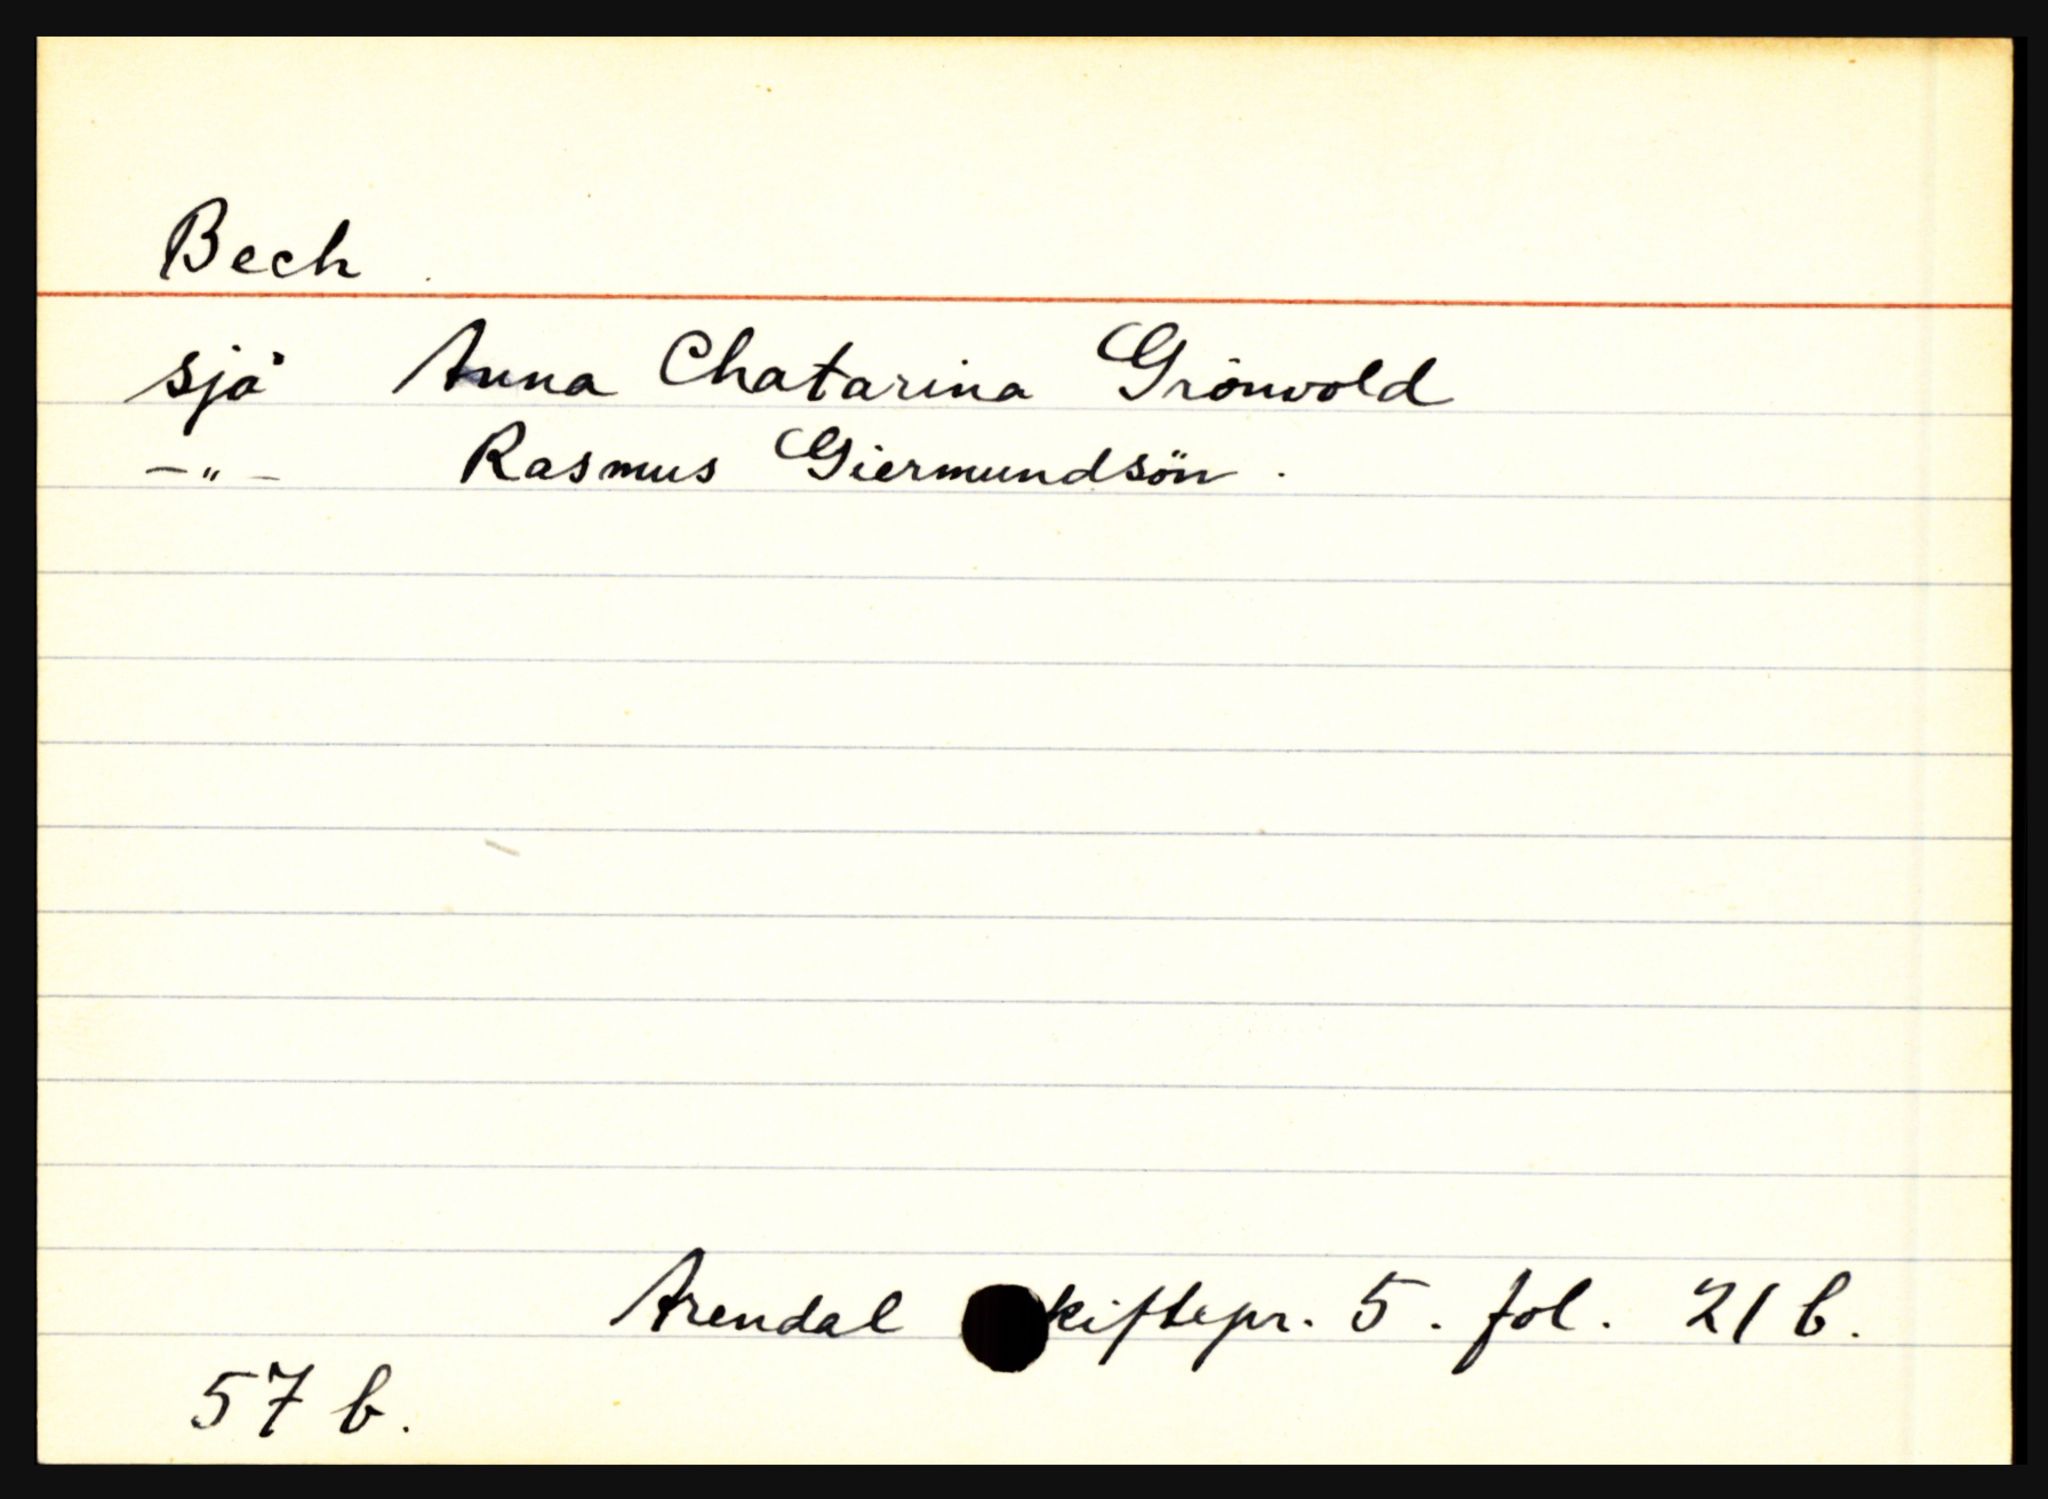 Bech
sjå Anna Chatarina Grönvold
-"- Rasmus Giermundsön.
Arendal kiftepr. 5. fol. 21 b.
57 b.